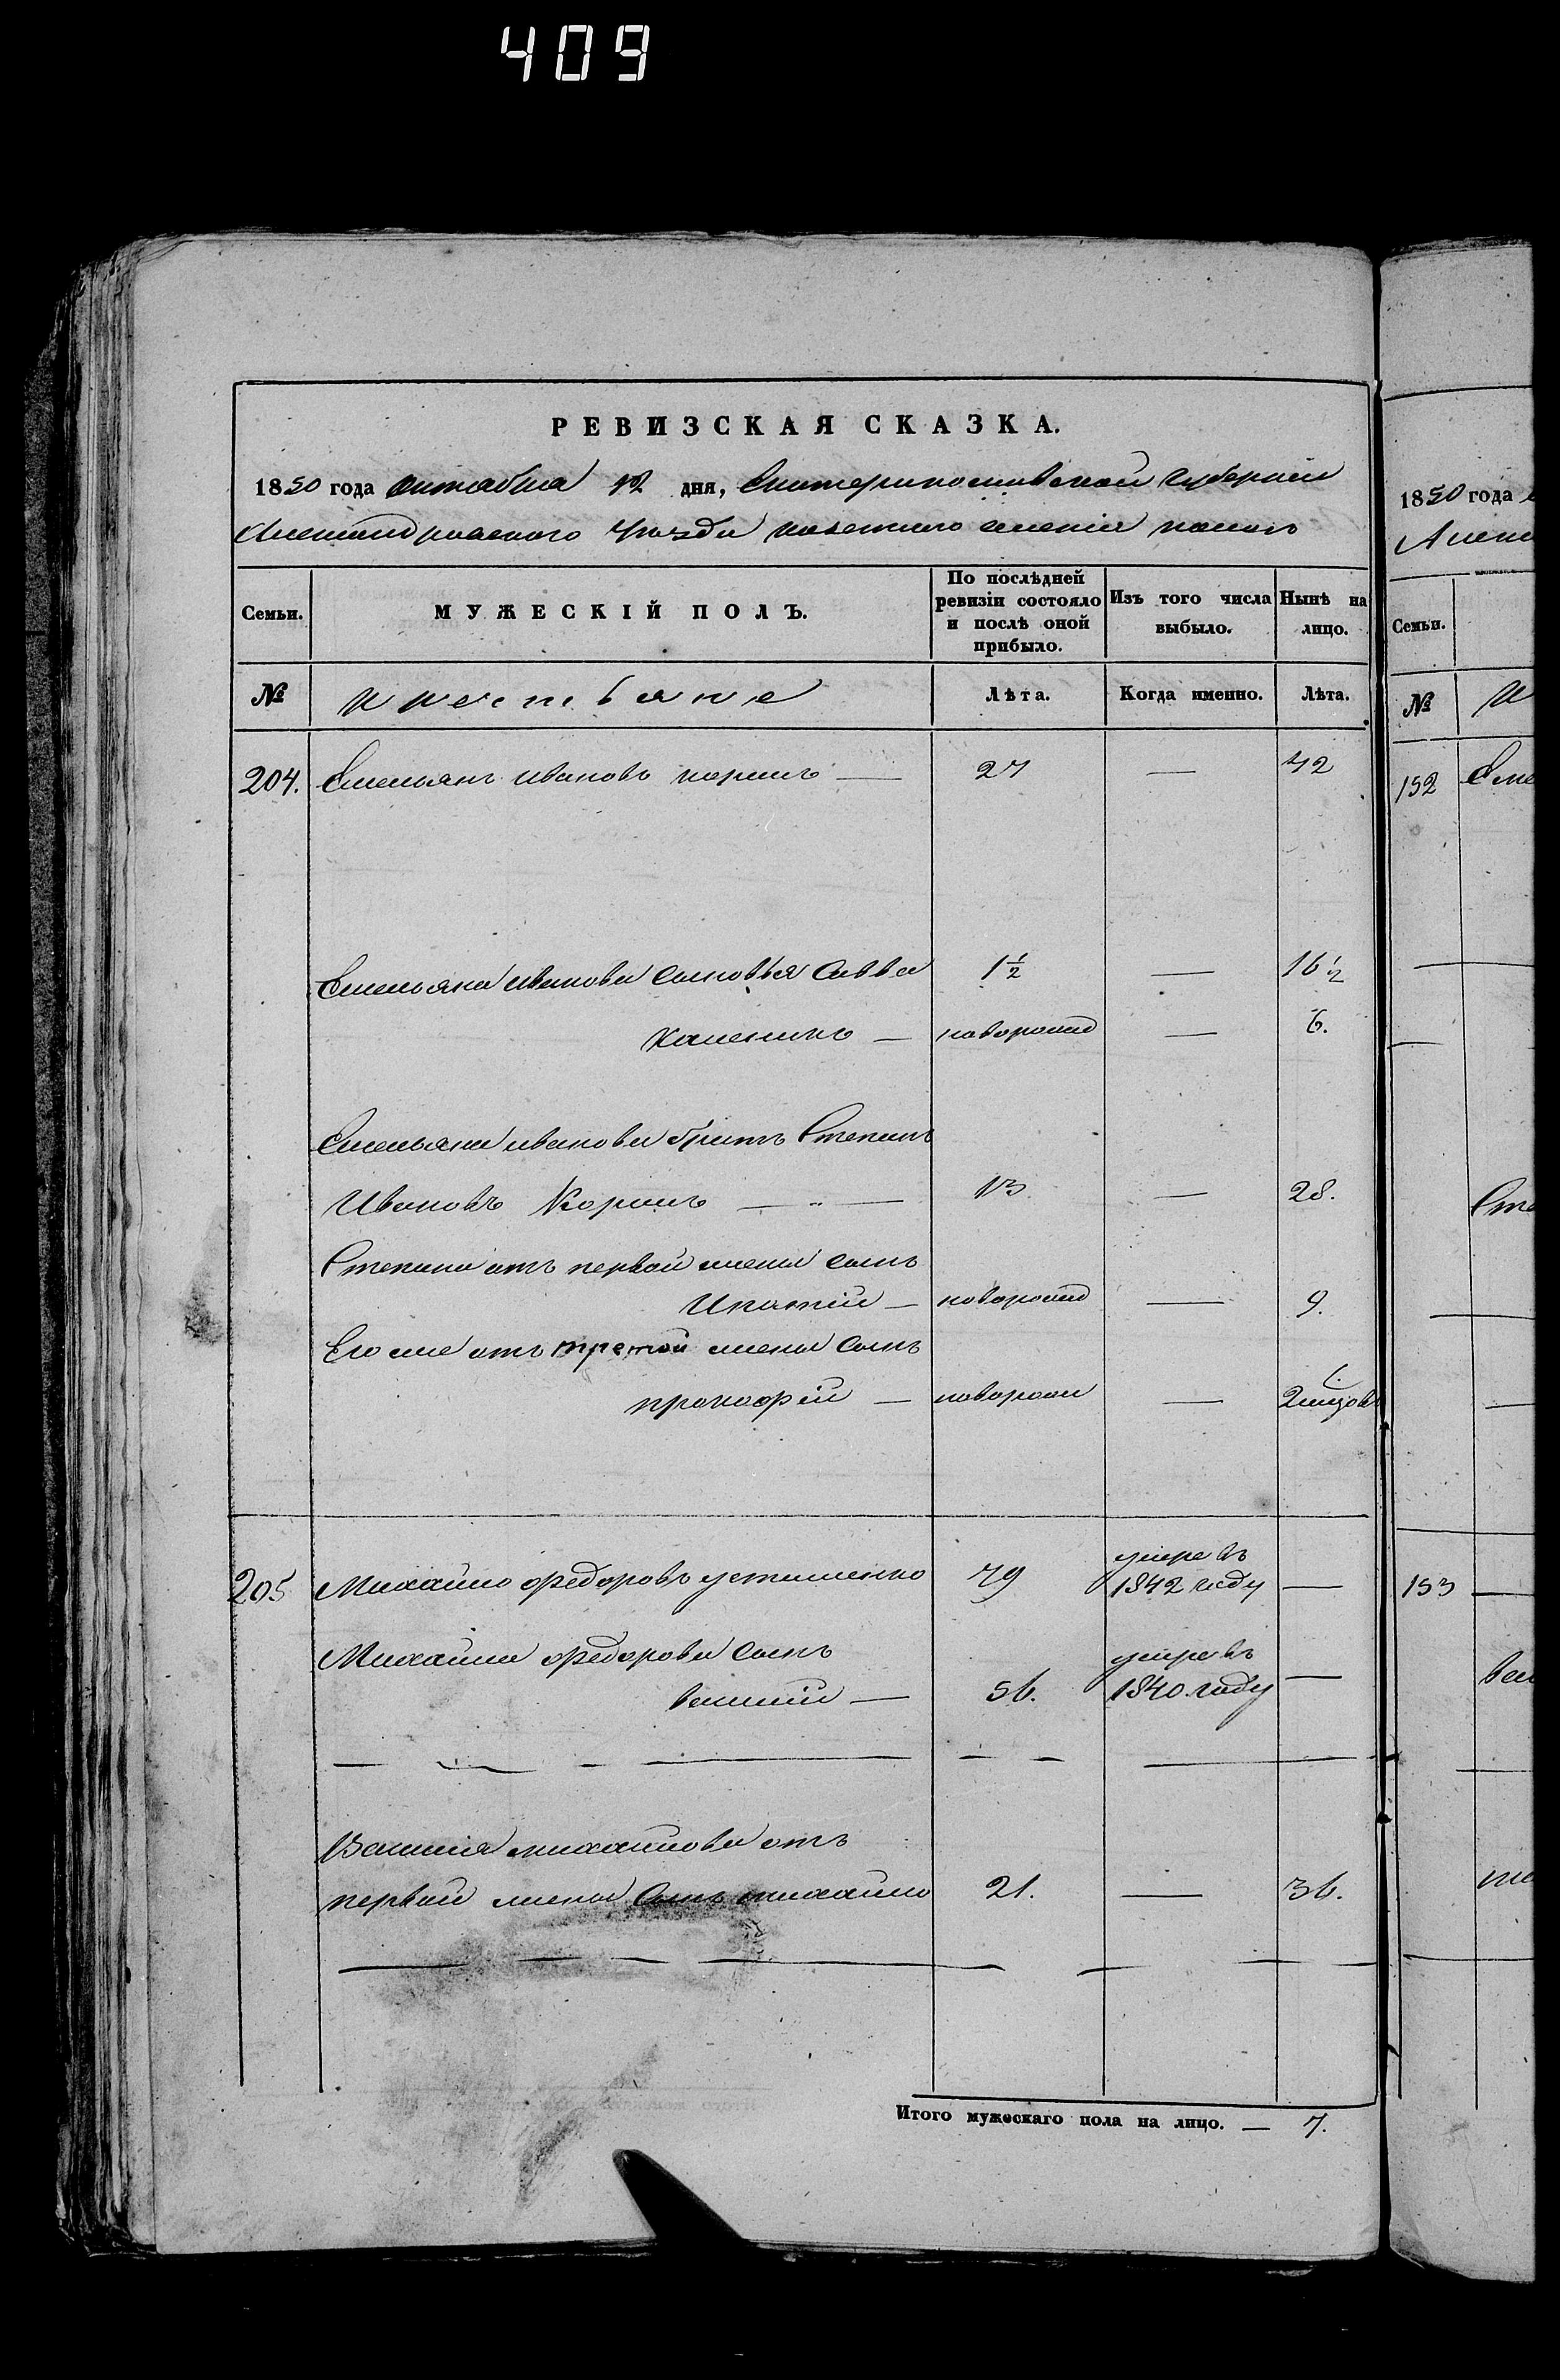 409
РЕВИЗСКАЯ СКАЗКА.
1850 года октября 12 дня, Екатеринославской губерніи
Александровского уѣзда имения
Семьи. МУЖЕСКІЙ ПОЛЪ. По послѣдней ревизіи состояло и послѣ оной прибыло. Изъ того числа выбыло. Нынѣ на лицо.
№ крестьяне Лѣта. Когда именно. Лѣта.
204. Емельянъ ивановъ коржъ — 27 — 42
Емельяна иванова сыновья Савва 1½ — 16½
Каленикъ — новорожд — 6.
Емельяна иванова братъ Степанъ
Ивановъ Коржъ — 13 — 28.
Степана отъ первой жены сынъ
Ипатій — новорожд — 9.
Его же отъ третой жены сынъ
прокофій — новорож — 2
205 Михайло федоровъ устименко 79 умре въ 1842 году —
Михайла федорова сынъ
василій — 56. умре въ 1840 году —
Василія михайлова отъ
первой жены сынъ михайло 21. — 36.
Итого мужескаго пола на лицо. — 7.
1850 года
Алекс
Семьи.
№
152 Еме
Сте
153
Вас